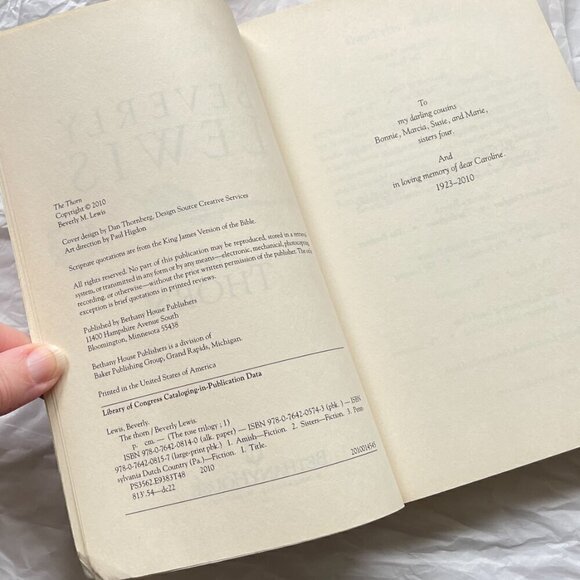 The Thorn
Copyright © 2010
Beverly M. Lewis
Cover design by Dan Thornberg, Design Source Creative Services
Art direction by Paul Higdon
Scripture quotations are from the King James Version of the Bible.
All rights reserved. No part of this publication may be reproduced, stored in a retrieval
system, or transmitted in any form or by any means—electronic, mechanical, photocopying,
recording, or otherwise—without the prior written permission of the publisher. The only
exception is brief quotations in printed reviews.
Published by Bethany House Publishers
11400 Hampshire Avenue South
Bloomington, Minnesota 55438
Bethany House Publishers is a division of
Baker Publishing Group, Grand Rapids, Michigan.
Printed in the United States of America
Library of Congress Cataloging-in-Publication Data
Lewis, Beverly.
The thorn / Beverly Lewis.
p. cm. — (The rose trilogy ; 1)
ISBN 978-0-7642-0814-0 (alk. paper) — ISBN 978-0-7642-0574-3 (pbk.) — ISBN
978-0-7642-0815-7 (large-print pbk.) 1. Amish—Fiction. 2. Sisters—Fiction. 3. Penn-
sylvania Dutch Country (Pa.)—Fiction. I. Title.
PS3562.E9383T48 2010
813'.54—dc22
To
my darling cousins
Bonnie, Marcia, Susie, and Marie,
sisters four.
And
in loving memory of dear Caroline
1923–2010